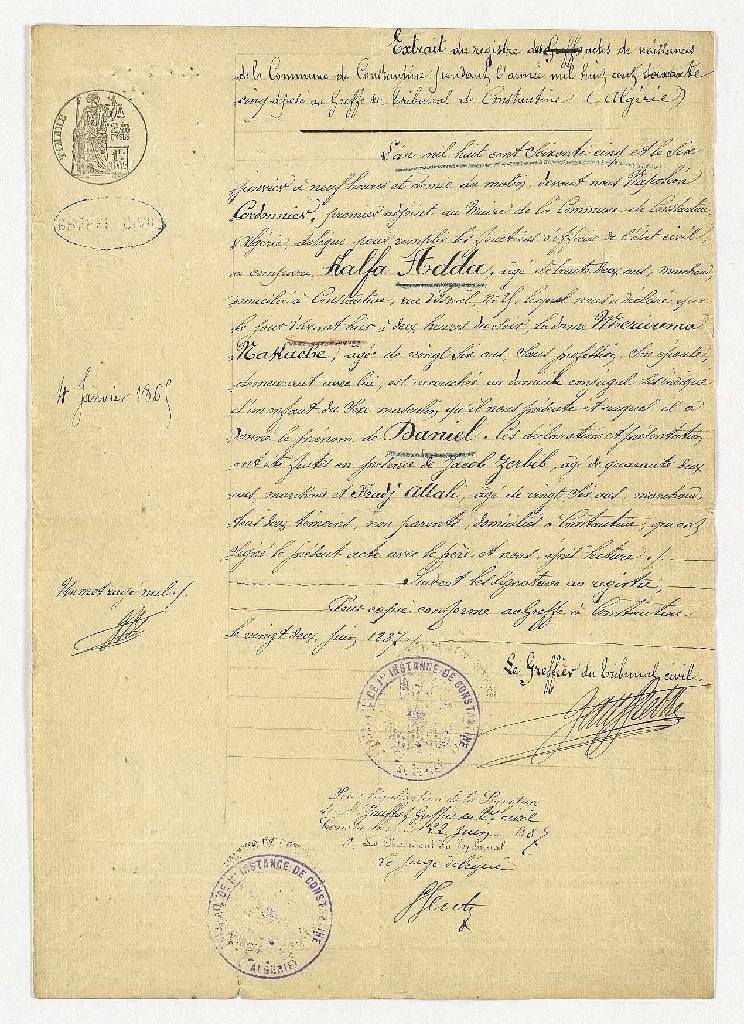 Extrait du registre des actes de naissances
de la Commune de Constantine pendant l'année mil huit cent soixante
cinq déposé au Greffe du Tribunal de Constantine (Algérie)
TIMBRE
L'an mil huit cent soixante cinq et le six
janvier à neuf heures et demie du matin, devant nous Napoléon
Cordonnier, premier adjoint au Maire de la Commune de Constantine
(Algérie) délégué pour remplir les fonctions d'officier de l'état civil,
a comparu Kalfa Adda, âgé de trente deux ans, marchand,
domicilié à Constantine, rue lequel nous a déclaré que
le jour d'avant hier à deux heures du soir, la dame Meriouma
Nakache, âgée de vingt six ans, sans profession, son épouse,
demeurant avec lui, est accouchée au domicile conjugal
d'un enfant du sexe masculin, qu'il nous présente et auquel il a
donné le prénom de Daniel. Ces déclaration et présentation
ont été faites en présence de Jacob Zerbib, âgé de quarante deux
ans, marchand et Fradj Attali, âgé de vingt six ans, marchand,
tous deux témoins, non parents, domiciliés à Constantine, qui ont
signé le présent acte avec le père et nous, après lecture ./.
Suivent les signatures au registre,
Pour copie conforme au Greffe à Constantine
le vingt deux juin 1887 ./.
4 Janvier 1865
Un mot rayé nul ./.
Le Greffier du Tribunal civil.
TRIBUNAL DE 1re INSTANCE DE CONSTANTINE
ALGERIE
Pour légalisation de la Signature
de M. Greffier au Tal civil
Constantine 22 juin 1887
P. Le Président du Tribunal
Le Juge délégué
TRIBUNAL DE 1re INSTANCE DE CONSTANTINE
ALGERIE